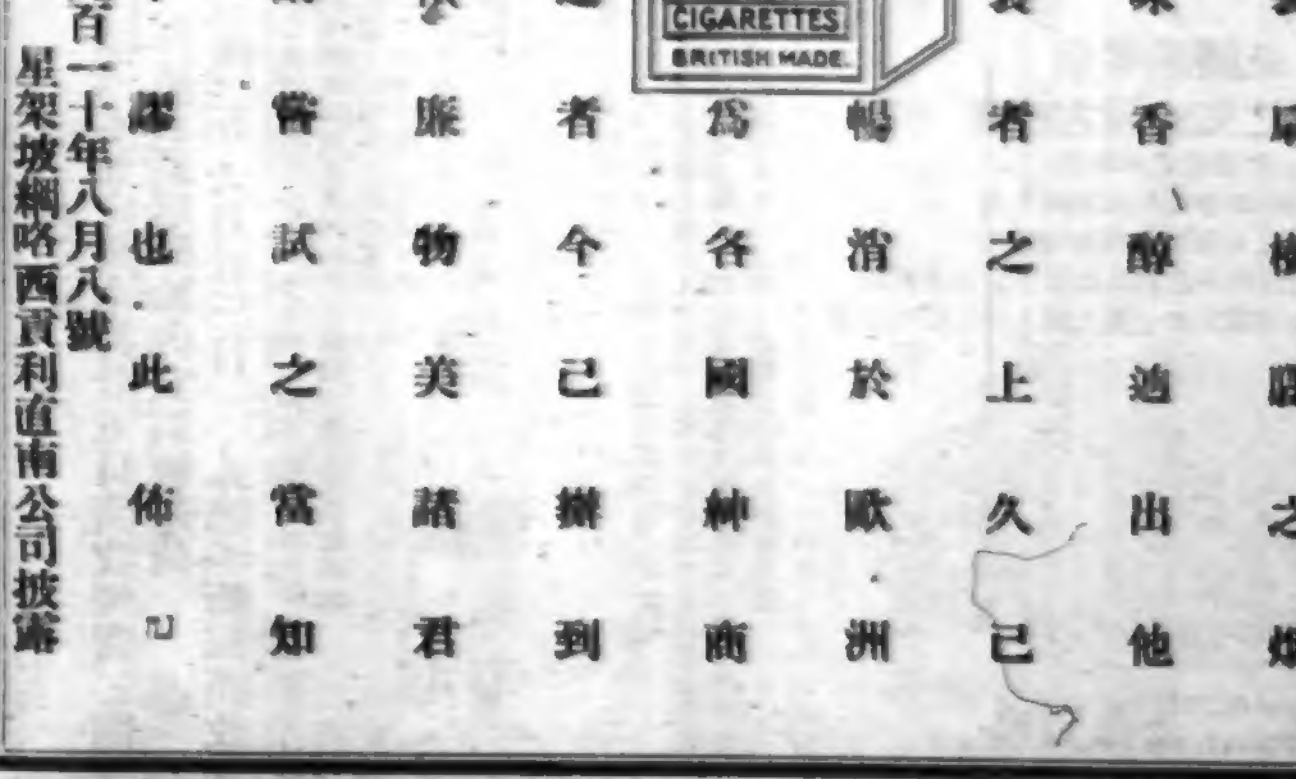 CIGARETTES
BRITISH MADE.
之
香醇迥出他
者之上久已
暢消於歐洲
為各國紳商
者今已辦到
廉物美諸君
嘗試之當知
謬也此佈
百一十年八月八號
星架坡網咯西貢利直南公司披露